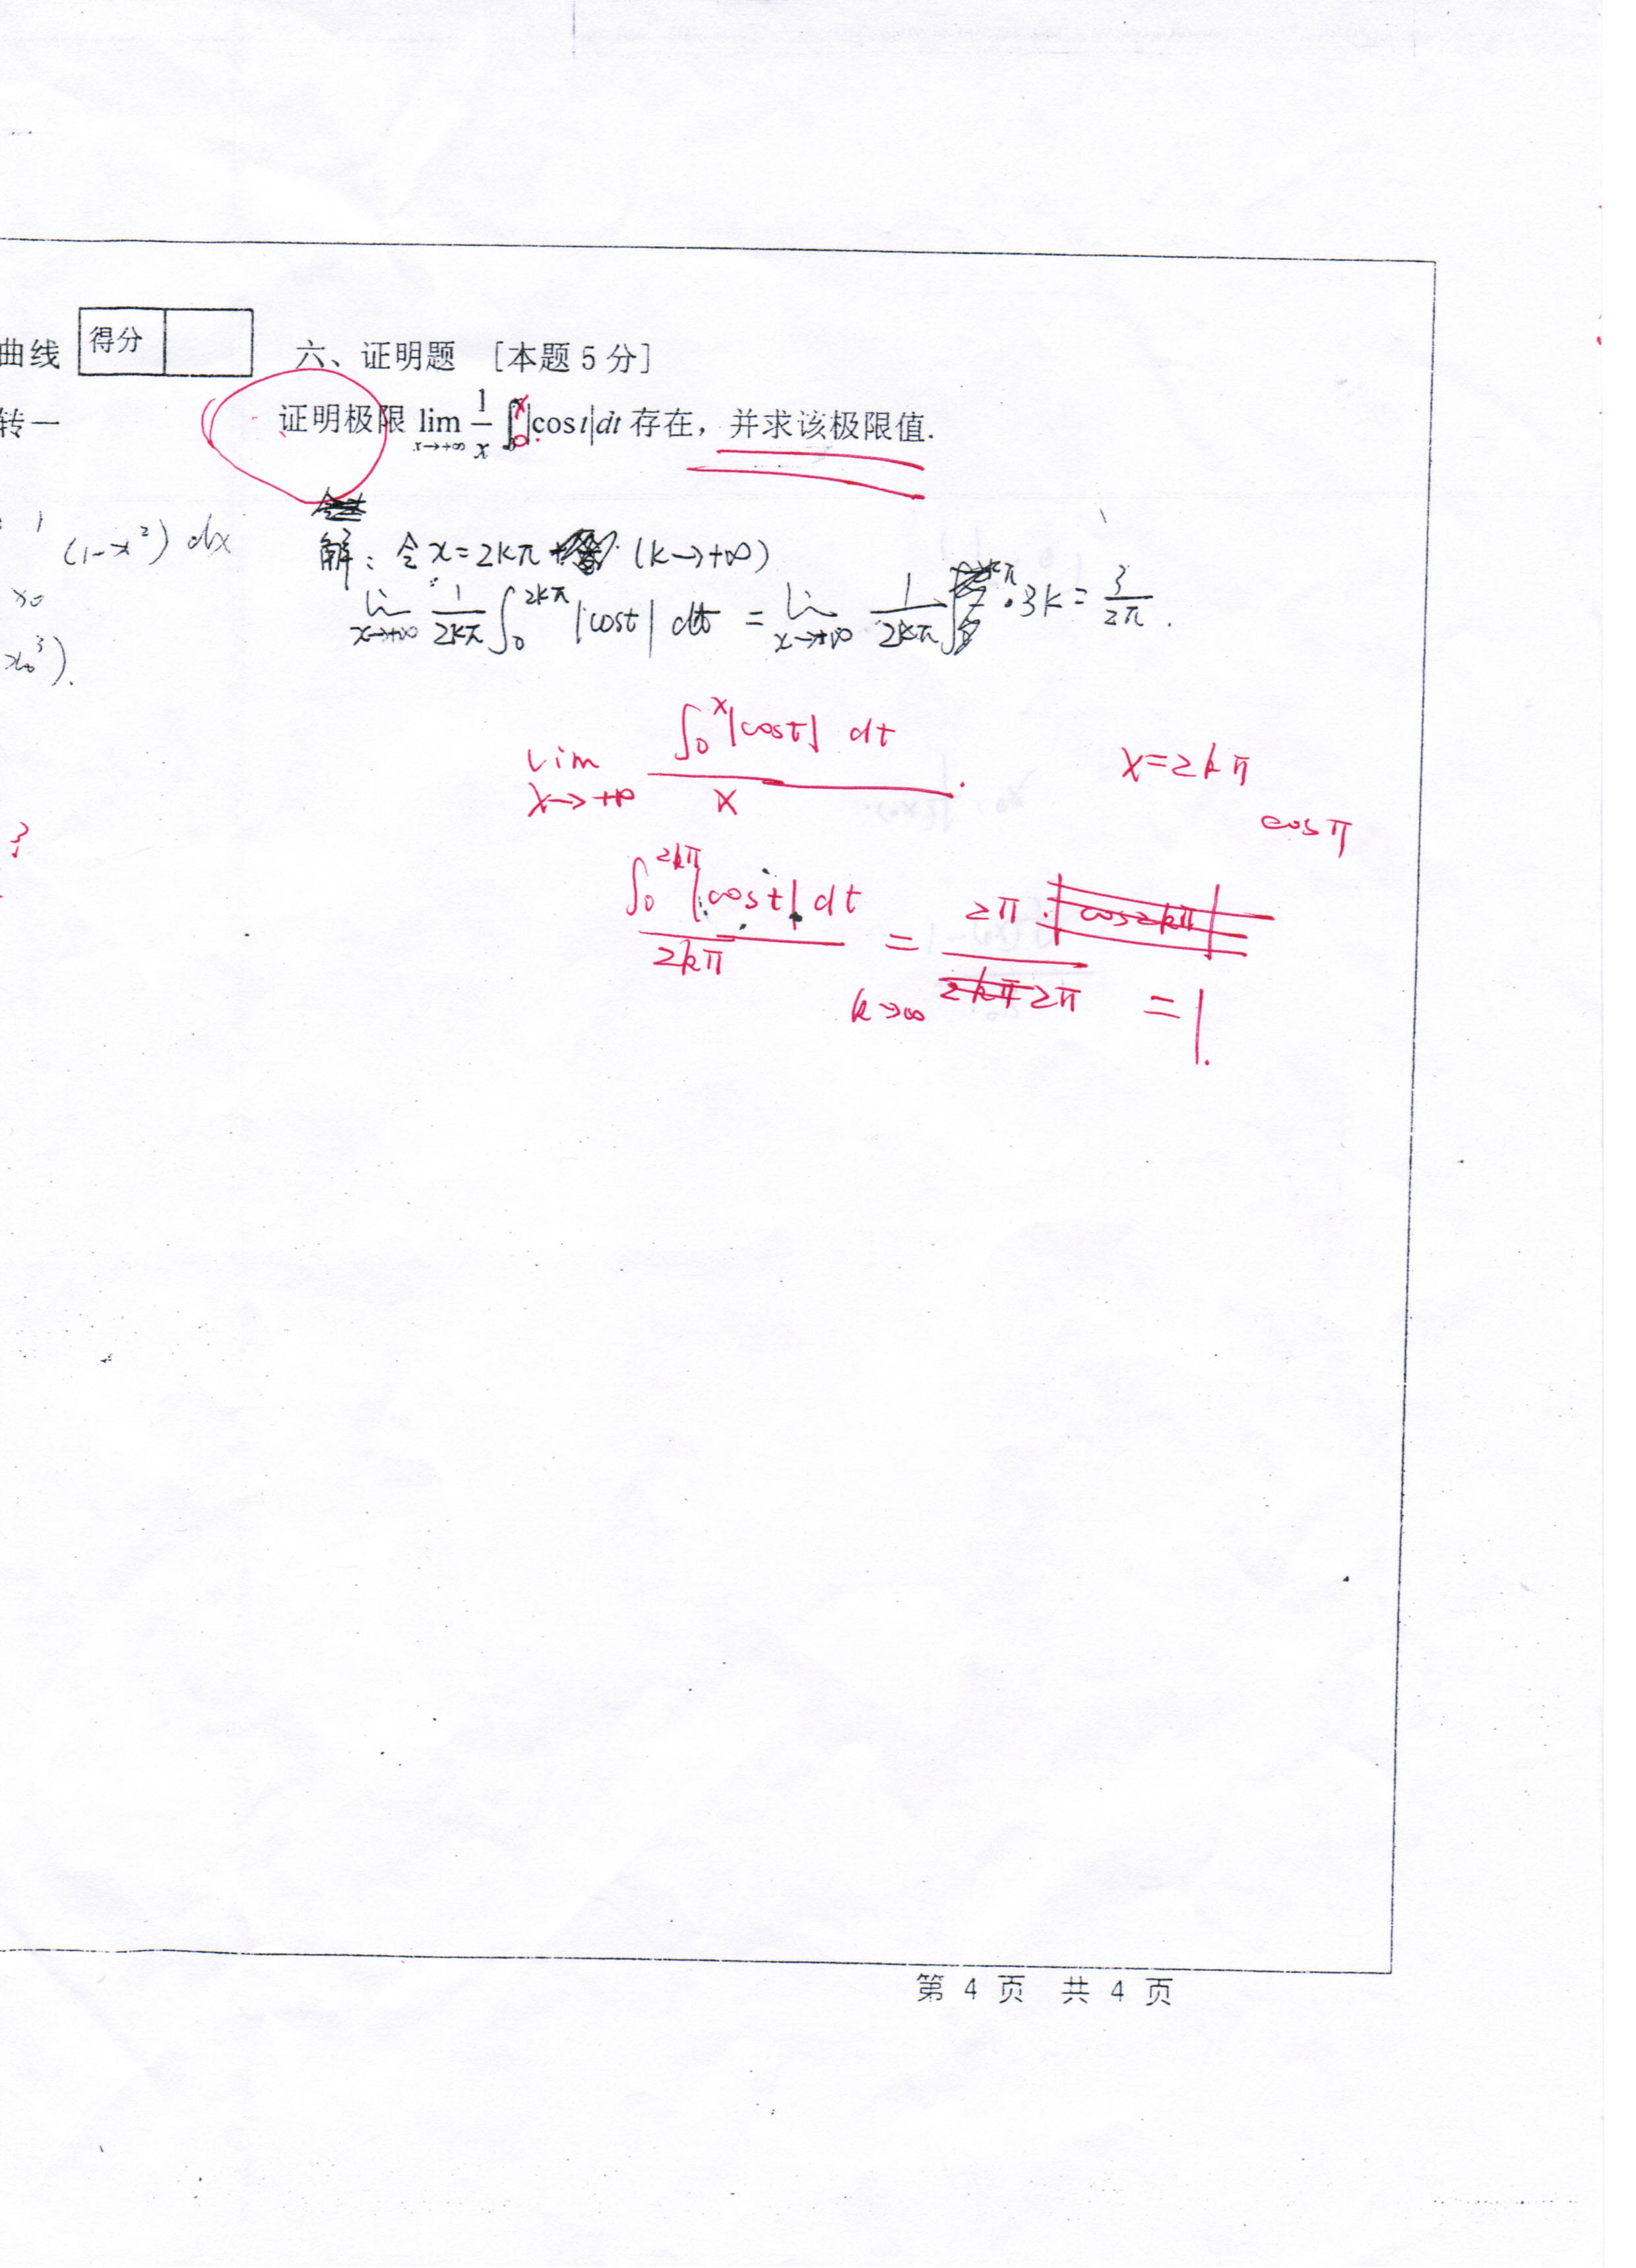 曲线
转一
1
(1-x²) dx
x₀
x₀³).
?
得分
六、证明题 [本题5分]
证明极限 lim x→+∞ 1/x ∫₀ˣ |cos t| dt 存在，并求该极限值.
解：令 x=2kπ (k→+∞)
lim x→+∞ 1/2kπ ∫₀^2kπ |cost| dt = lim x→+∞ 1/2kπ · 3k = 3/2π .
lim x→+∞ ∫₀ˣ |cost| dt / x .
x=2kπ
cosπ
∫₀^2kπ |cost| dt / 2kπ = 2π · |cos2kπ| / 2kπ 2π = 1.
k→∞
第 4 页 共 4 页